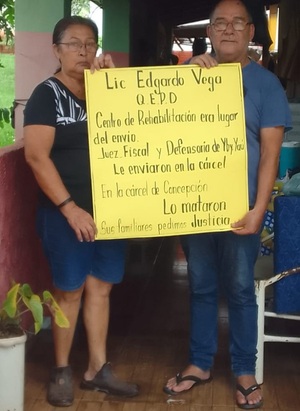 Lic Edgardo Vega
Q.E.P.D
Centro de Rehabilitación era lugar
del envio.
Juez. Fiscal y Defensoria de Yby Yaú
Le enviaron en la cárcel
En la cárcel de Concepción
Lo mataron
Sus familiares pedimos Justicia